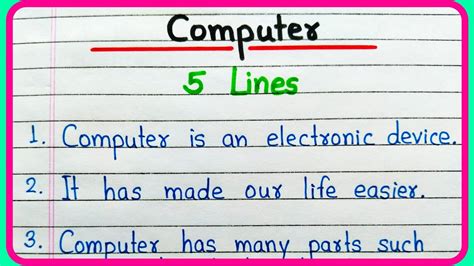 Computer
5 Lines
1. Computer is an electronic device.
2. It has made our life easier.
3. Computer has many parts such